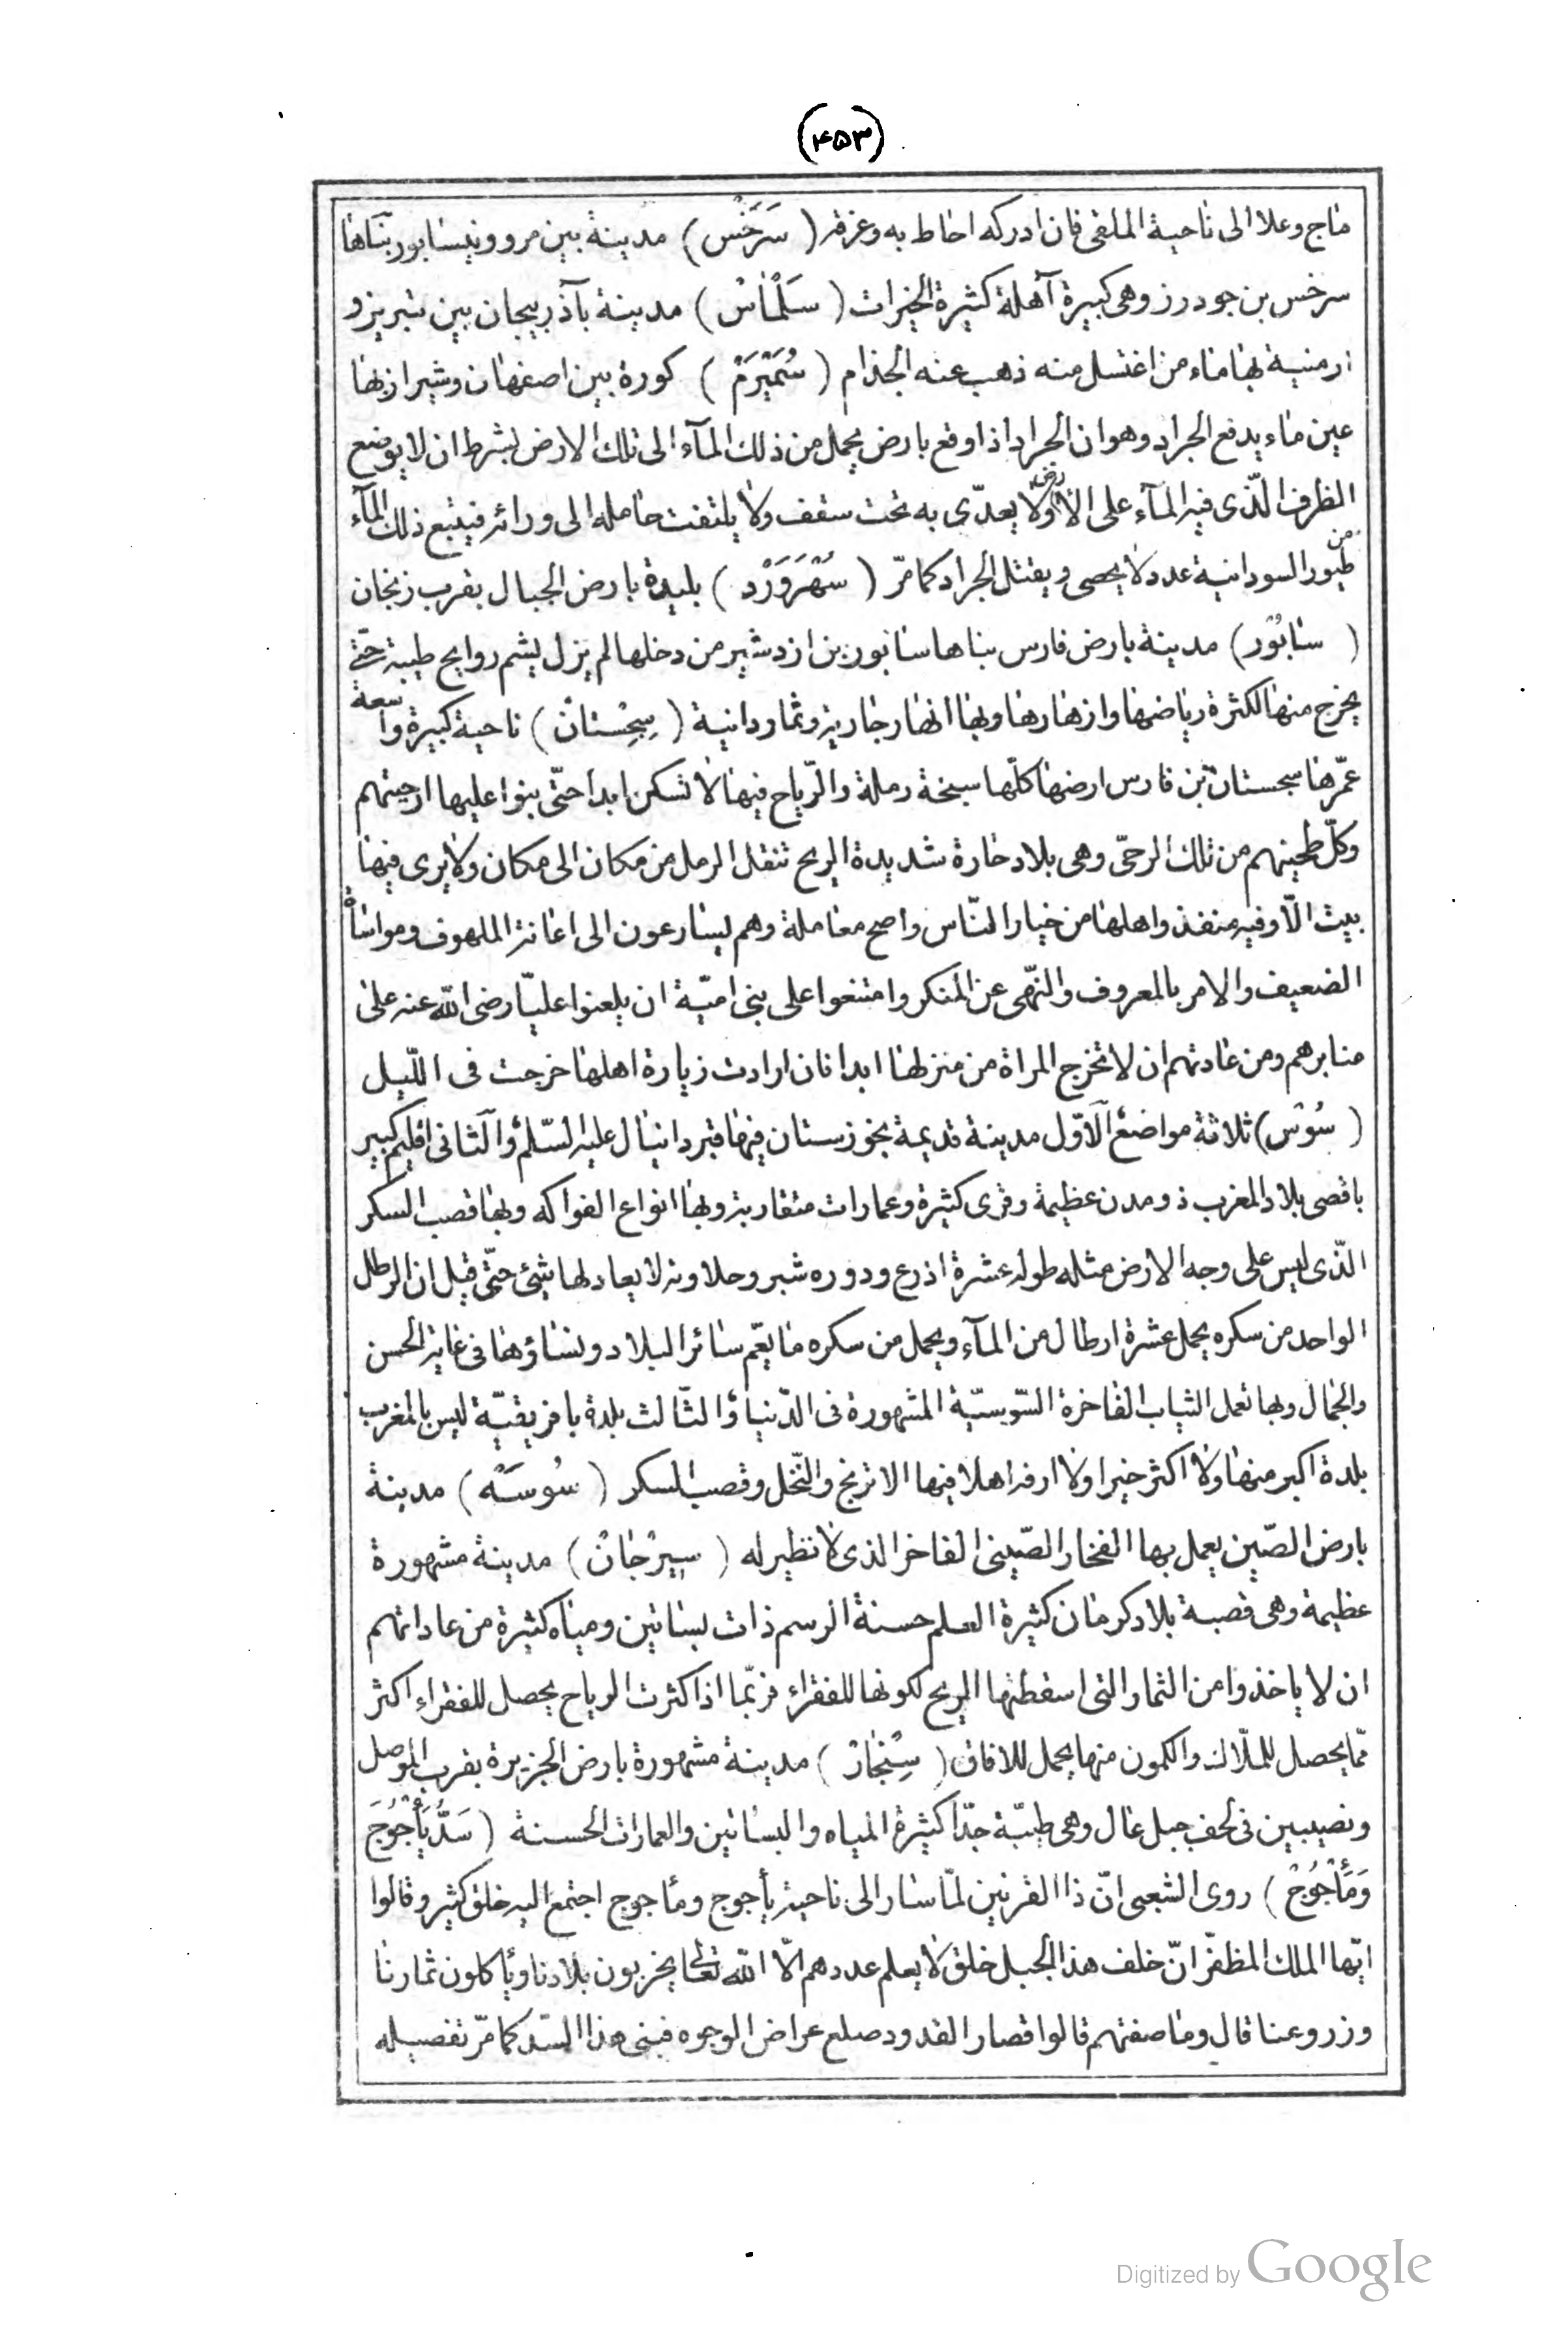 (۴۵۳)
ماج وعلا الى ناحية الملقى فان ادركه احاط به وغرقه ( سَرَخْس ) مدينة بين مرو ونيسابور بناها
سرخس بن جودرز وهى كبيرة آهلة كثيرة الخيرات ( سَلْمَاسْ ) مدينة بآذربيجان بين تبريز و
ارمنية بها ماء من اغتسل منه ذهب عنه الجذام ( سُمَيْرَمْ ) كورة بين اصفهان وشيراز بها
عين ماء يدفع الجراد وهو ان الجراد اذا وقع بارض يحمل من ذلك المآء الى تلك الارض بشرط ان لا يوضع
الظرف الّذى فيه المآء على الارض ولا يعدّى به تحت سقف ولا يلتفت حامله الى ورائه فيتبع ذلك المآء
من طيور السودانية عدد لا يحصى ويقتل الجراد كما مرّ ( سُهْرَوَرْد ) بليدة بارض الجبال بقرب زنجان
( سابُوْر ) مدينة بارض فارس بناها سابور بن ازدشير من دخلها لم يزل يشم روايح طيبة حتّى
يخرج منها لكثرة رياضها وازهارها وبها انهار جارية وثمار دانية ( سِجِسْتانْ ) ناحية كبيرة واسعة
عمّرها سجستان بن فارس ارضها كلّها سبخة رملة والرّياح فيها لا تسكن ابدا حتّى بنوا عليها ارحيتهم
وكلّ طحينهم من تلك الرحىّ وهى بلاد حارة شديدة الريح تنقل الرمل من مكان الى مكان ولا يرى فيها
بيت الّا وفيه منفذ واهلها من خيار النّاس واصح معاملة وهم يسارعون الى اغاثة الملهوف ومواساة
الضعيف والامر بالمعروف والنّهى عن المنكر وامتنعوا على بنى اميّة ان يلعنوا عليّا رضى الله عنه على
منابرهم ومن عادتهم ان لا تخرج المراة من منزلها ابدا فان ارادت زيارة اهلها خرجت فى اللّيل
( سُوْس ) ثلاثة مواضع الَاوّل مدينة قديمة بخوزستان فيها قبر دانيال عليه السّلم والَثانى اقليم كبير
باقصى بلاد المغرب ذو مدن عظيمة وقرى كثيرة وعمارات متقاربة وبها انواع الفواكه وبها قصب السكر
الّذى ليس على وجه الارض مثله طوله عشرة اذرع ودوره شبر وحلاوته لا يعادلها شئ حتّى قيل ان الرطل
الواحد من سكره يحمل عشرة ارطال من المآء ويحمل من سكره ما يعّم سائر البلاد ونساؤها فى غاية الحسن
والجمال وبها تعمل الثياب الفاخرة السّوسيّة المشهورة فى الدّنيا والثّالث بلدة بافريقيّة ليس بالمغرب
بلدة اكبر منها ولا اكثر خيرا ولا ارفه اهلا فيها الاترنج والنّخل وقصب السكر ( سُوسَهْ ) مدينة
بارض الصّين يعمل بها الفخار الصّينى الفاخر الذى لا نظير له ( سِيرْجانْ ) مدينة مشهورة
عظيمة وهى قصبة بلاد كرمان كثيرة العلم حسنة الرسم ذات بساتين ومياه كثيرة من عاداتهم
ان لا ياخذوا من الثمار التى اسقطتها الريح لكونها للفقراء فربّما اذا كثرت الرياح يحصل للفقراء اكثر
ممّا يحصل للملّاك والكمون منها يحمل للافاق ( سِنْجارْ ) مدينة مشهورة بارض الجزيرة بقرب الموصل
ونصيبين فى لحف جبل عال وهى طيّبة جدّا كثيرة المياه والبساتين والعمارات الحسنة ( سَدُّ يَأْجُوْجَ
وَمَأْجُوْجْ ) روى الشعبى انّ ذا القرنين لمّا سار الى ناحية يأجوج ومأجوج اجتمع اليه خلق كثير وقالوا
ايّها الملك المظفّر انّ خلف هذا الجبل خلق لا يعلم عددهم الّا الله تعالى يخربون بلادنا ويأكلون ثمارنا
وزروعنا قال وما صفتهم قالوا قصار القدود صلع عراض الوجوه فبنى هذا السّد كما مرّ تفصيله
Digitized by Google